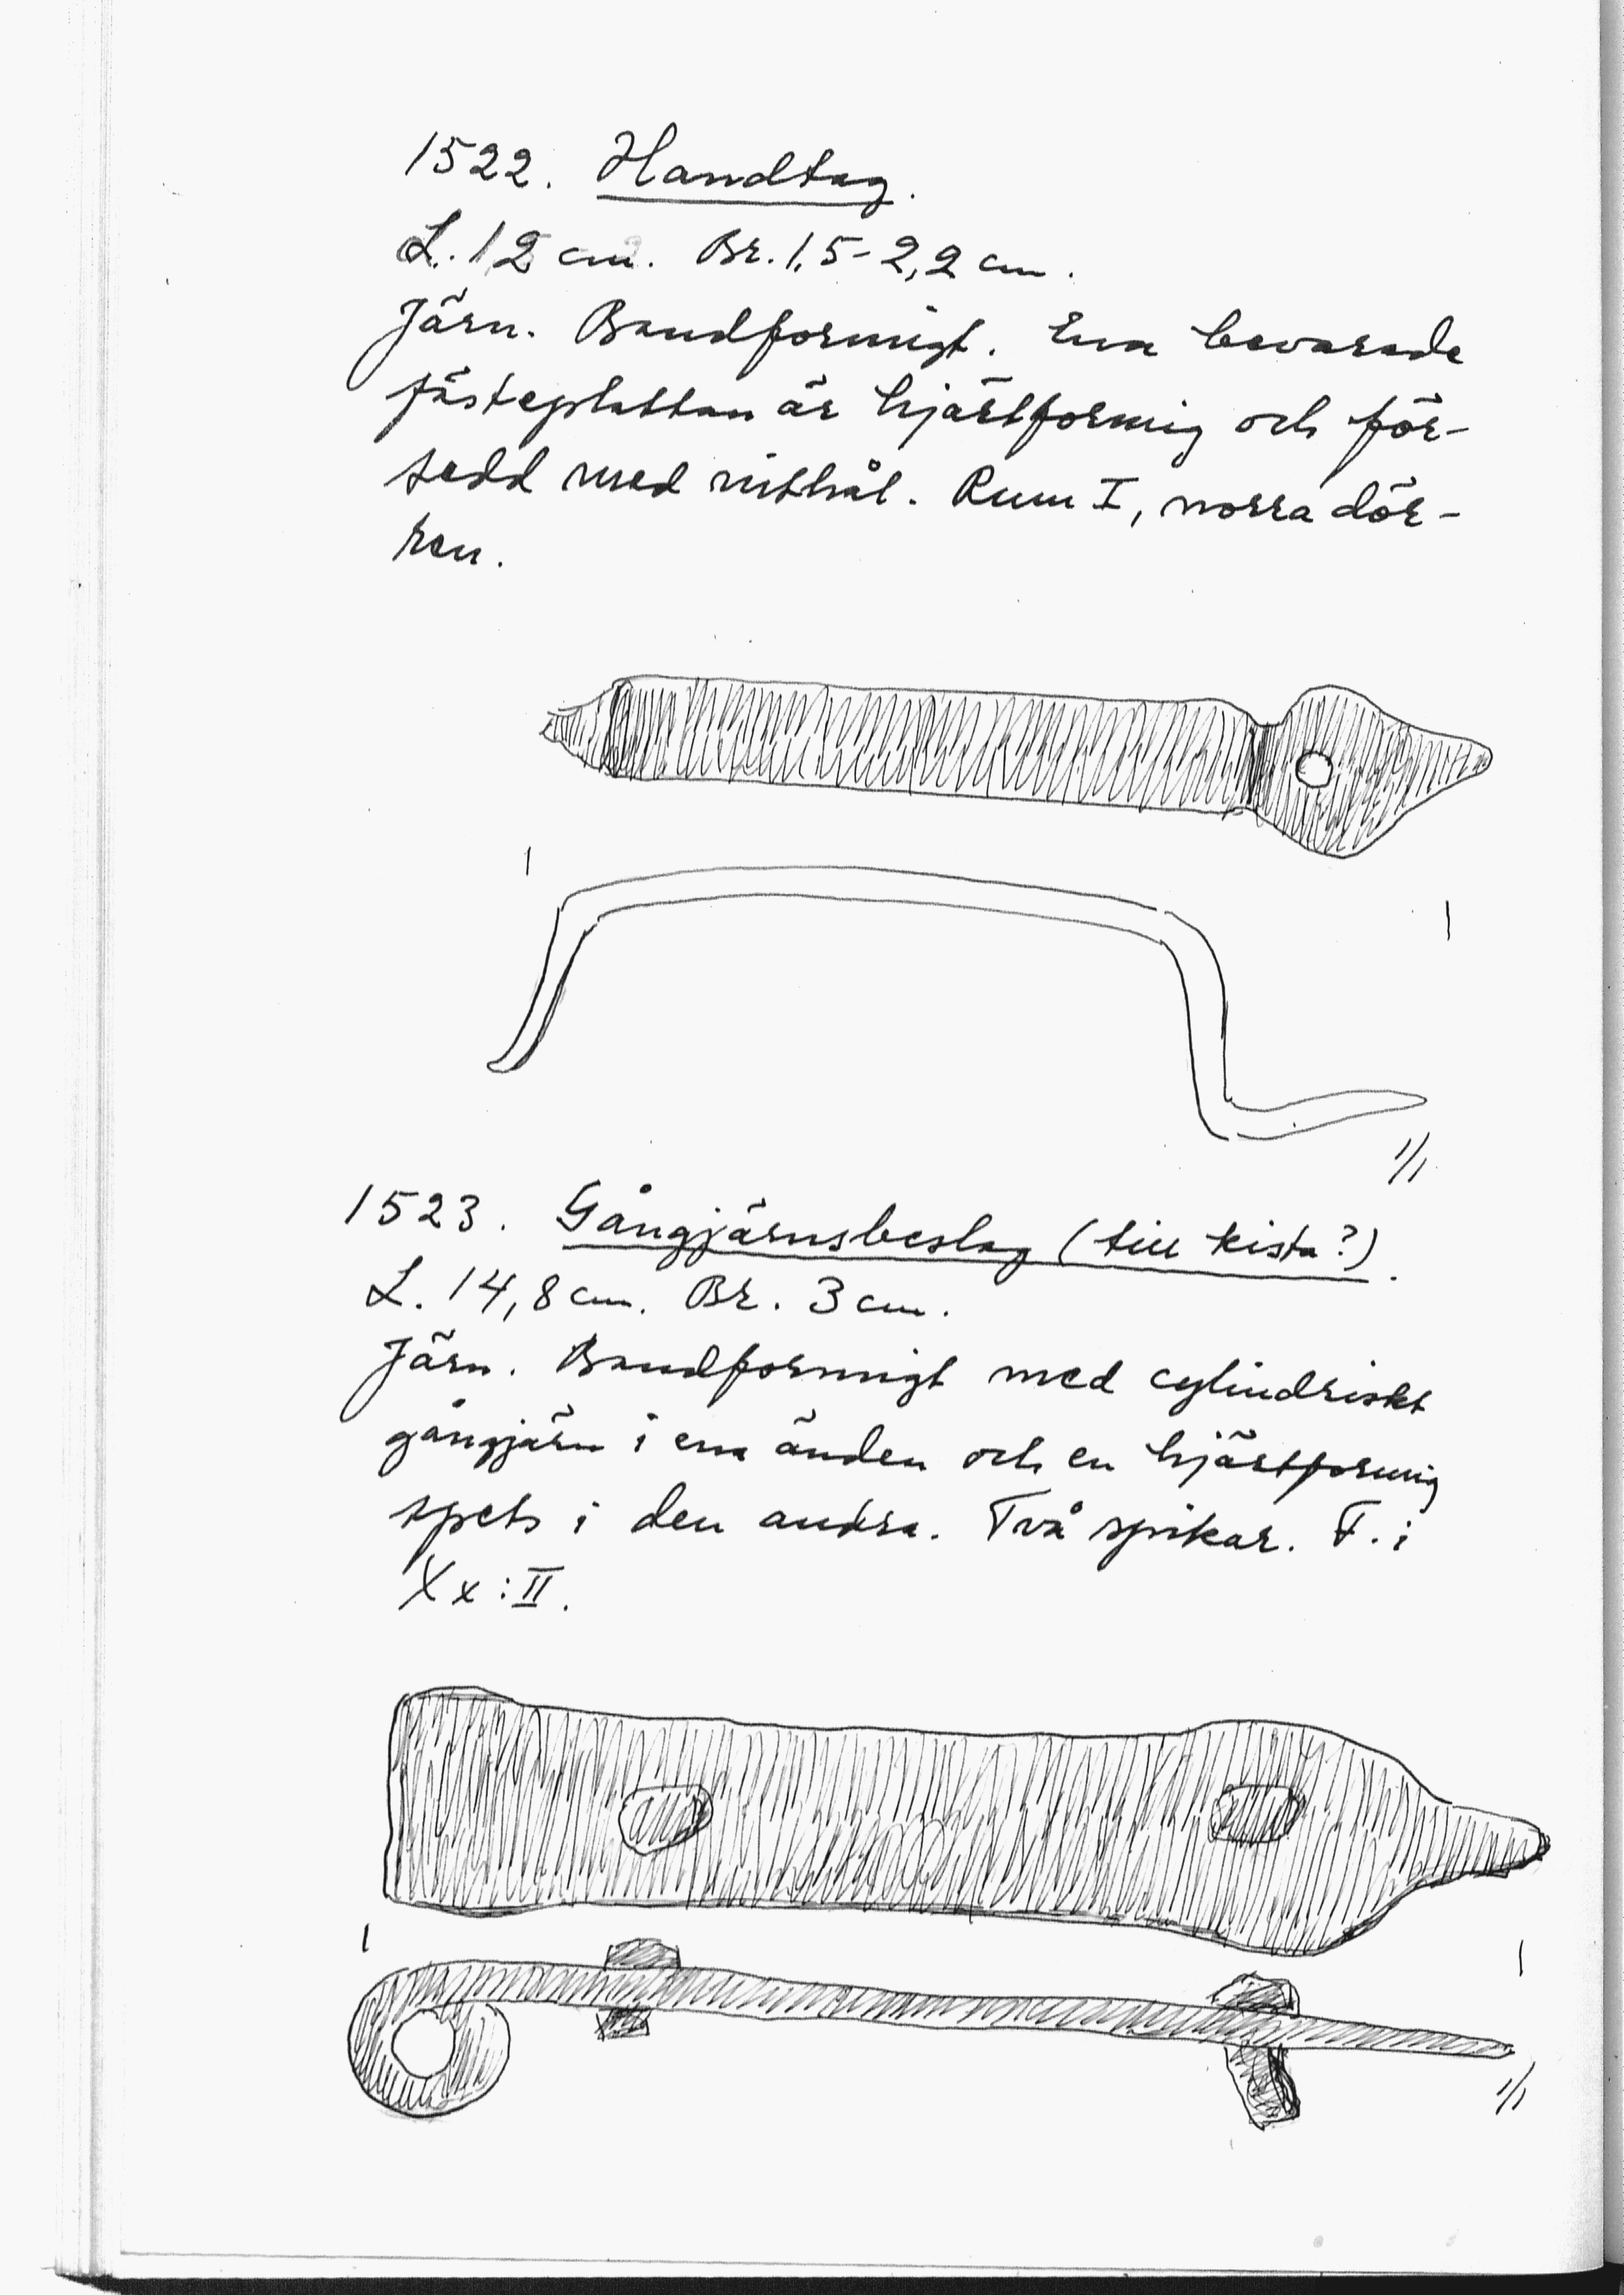 1522. Handtag.
L. 12 cm. Br. 1,5-2,2 cm.
Järn. Bandformigt. Ena bevarade
fästeplattan är hjärtformig och för-
sedd med nithål. Rum I, norra dör-
ren.
1/1
1523. Gångjärnsbeslag (till kista?).
L. 14,8 cm. Br. 3 cm.
Järn. Bandformigt med cylindriskt
gångjärn i ena änden och en hjärtformig
spets i den andra. Två spikar. F. i
Xx:II.
1/1